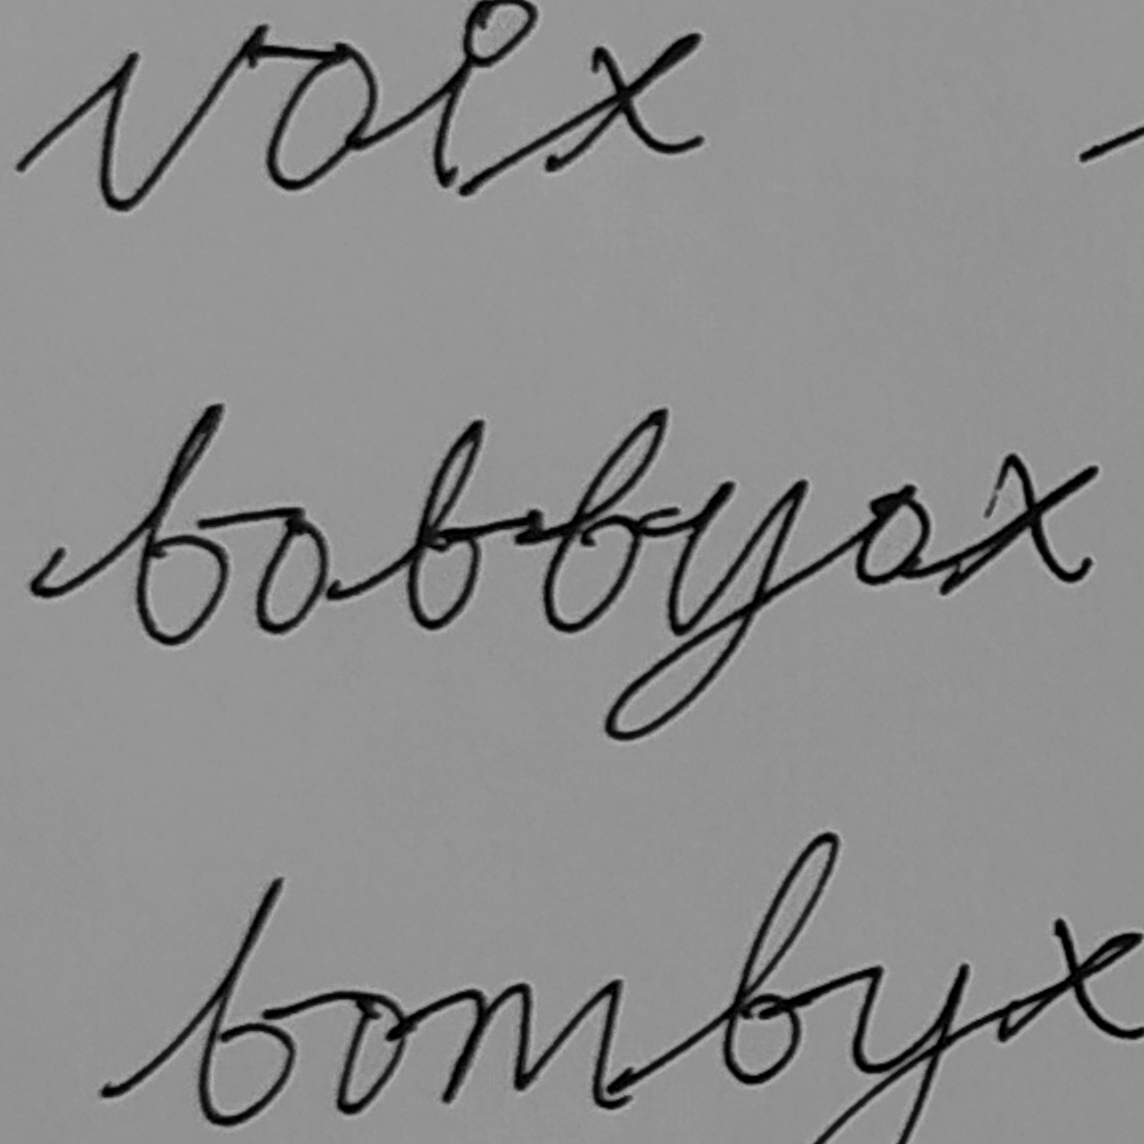 voix
bobbyox
bombyx